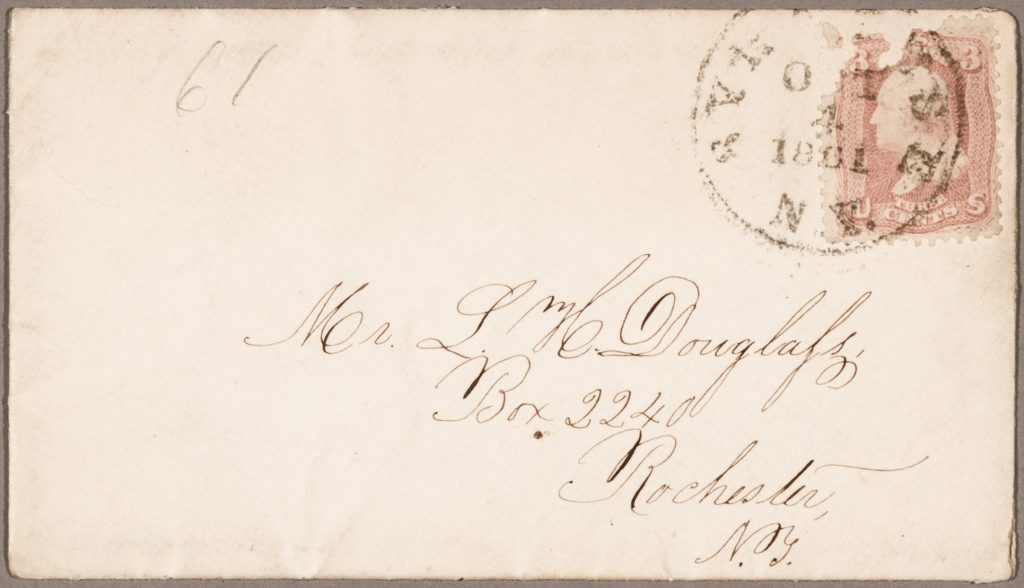 61
SYRACUSE
OCT
4
1861
N.Y.
3
3
U THREE S
CENTS
Mr. L. H. Douglaſs,
Box 2240
Rochester,
N.Y.